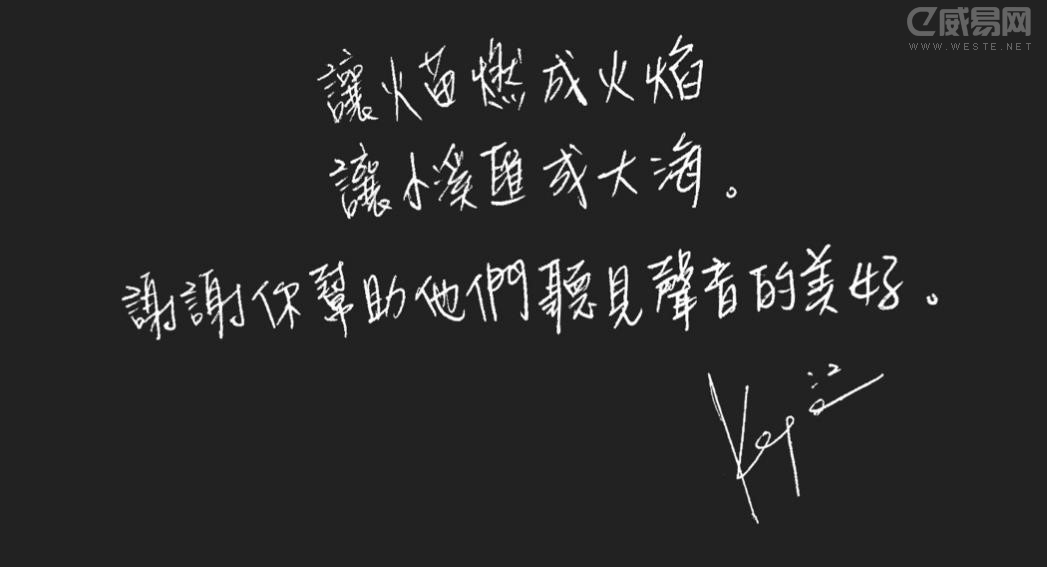 威易网
WWW.WESTE.NET
讓火苗燃成火焰
讓小溪匯成大海。
謝謝你幫助他們聽見聲音的美好。